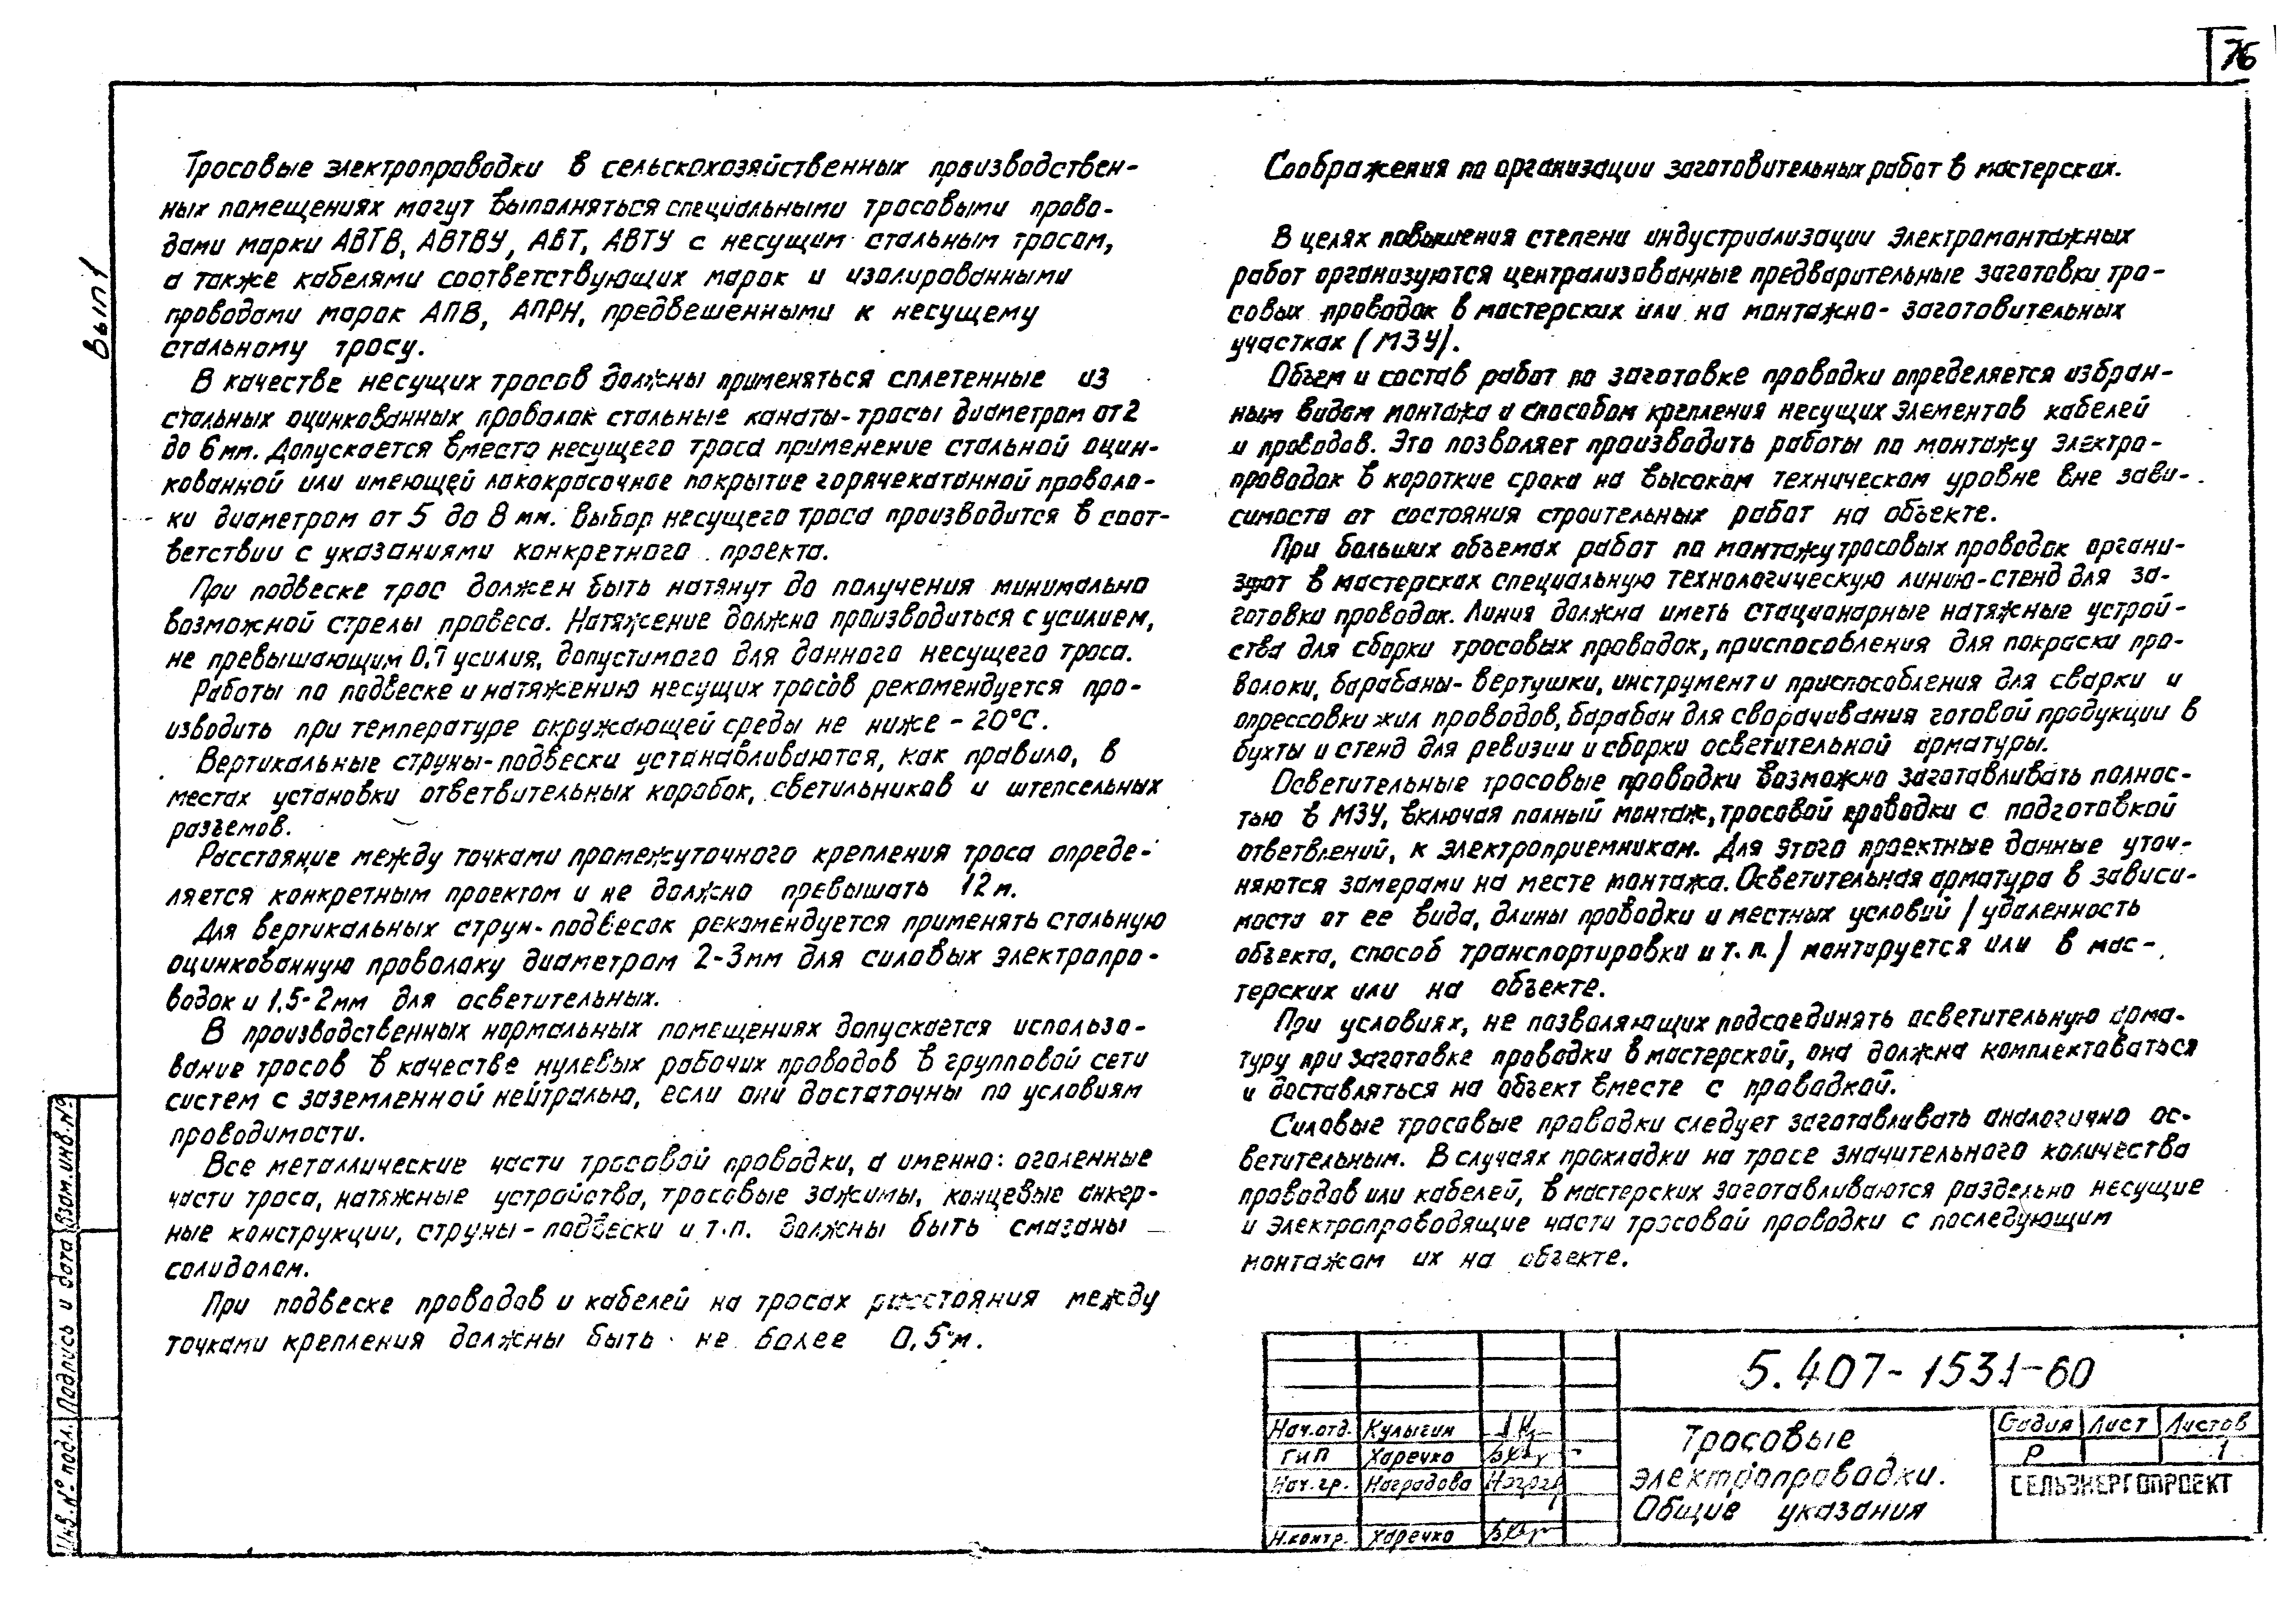 76
Вып 1
Тросовые электропроводки в сельскохозяйственных производствен-
ных помещениях могут выполняться специальными тросовыми прово-
дами марки АВТВ, АВТВУ, АВТ, АВТУ с несущим стальным тросом,
а также кабелями соответствующих марок и изолированными
проводами марок АПВ, АПРН, предвешенными к несущему
стальному тросу.
В качестве несущих тросов должны применяться сплетенные из
стальных оцинкованных проволок стальные канаты-тросы диаметром от 2
до 6 мм. Допускается вместо несущего троса применение стальной оцин-
кованной или имеющей лакокрасочное покрытие горячекатанной проволо-
ки диаметром от 5 до 8 мм. Выбор несущего троса производится в соот-
ветствии с указаниями конкретного проекта.
При подвеске трос должен быть натянут до получения минимально
возможной стрелы провеса. Натяжение должно производиться с усилием,
не превышающим 0,7 усилия, допустимого для данного несущего троса.
Работы по подвеске и натяжению несущих тросов рекомендуется про-
изводить при температуре окружающей среды не ниже - 20°С.
Вертикальные струны-подвески устанавливаются, как правило, в
местах установки ответвительных коробок, светильников и штепсельных
разъемов.
Расстояние между точками промежуточного крепления троса опреде-
ляется конкретным проектом и не должно превышать 12 м.
Для вертикальных струн-подвесок рекомендуется применять стальную
оцинкованную проволоку диаметром 2-3мм для силовых электропро-
водок и 1,5-2мм для осветительных.
В производственных нормальных помещениях допускается использо-
вание тросов в качестве нулевых рабочих проводов в групповой сети
систем с заземленной нейтралью, если они достаточны по условиям
проводимости.
Все металлические части тросовой проводки, а именно: оголенные
части троса, натяжные устройства, тросовые зажимы, концевые анкер-
ные конструкции, струны-подвески и т.п. должны быть смазаны
солидолом.
При подвеске проводов и кабелей на тросах расстояния между
точками крепления должны быть не более 0,5 м.
Соображения по организации заготовительных работ в мастерских.
В целях повышения степени индустриализации электромонтажных
работ организуются централизованные предварительные заготовки тро-
совых проводок в мастерских или на монтажно-заготовительных
участках (МЗУ).
Объем и состав работ по заготовке проводки определяется избран-
ным видом монтажа и способом крепления несущих элементов кабелей
и проводов. Это позволяет производить работы по монтажу электро-
проводок в короткие сроки на высоком техническом уровне вне зави-
симости от состояния строительных работ на объекте.
При больших объемах работ по монтажу тросовых проводок органи-
зуют в мастерских специальную технологическую линию-стенд для за-
готовки проводок. Линия должна иметь стационарные натяжные устрой-
ства для сборки тросовых проводок, приспособления для покраски про-
волоки, барабаны-вертушки, инструмент и приспособления для сварки и
опрессовки жил проводов, барабан для сворачивания готовой продукции в
бухты и стенд для ревизии и сборки осветительной арматуры.
Осветительные тросовые проводки возможно заготавливать полнос-
тью в МЗУ, включая полный монтаж, тросовой проводки с подготовкой
ответвлений, к электроприемникам. Для этого проектные данные уточ-
няются замерами на месте монтажа. Осветительная арматура в зависи-
мости от ее вида, длины проводки и местных условий /удаленность
объекта, способ транспортировки и т.п./ монтируется или в мас-
терских или на объекте.
При условиях, не позволяющих подсоединять осветительную арма-
туру при заготовке проводки в мастерской, она должна комплектоваться
и доставляться на объект вместе с проводкой.
Силовые тросовые проводки следует заготавливать аналогично ос-
ветительным. В случаях прокладки на тросе значительного количества
проводов или кабелей, в мастерских заготавливаются раздельно несущие
и электропроводящие части тросовой проводки с последующим
монтажом их на объекте.
5.407-153.1-60
Нач.отд. Кулыгин
ГИП Харечко
Нач.гр. Наградова
Н.контр. Харечко
Тросовые
электропроводки.
Общие указания
Стадия Лист Листов
Р 1
СЕЛЬЭНЕРГОПРОЕКТ
Инв. № подл. Подпись и дата Взам. инв. №